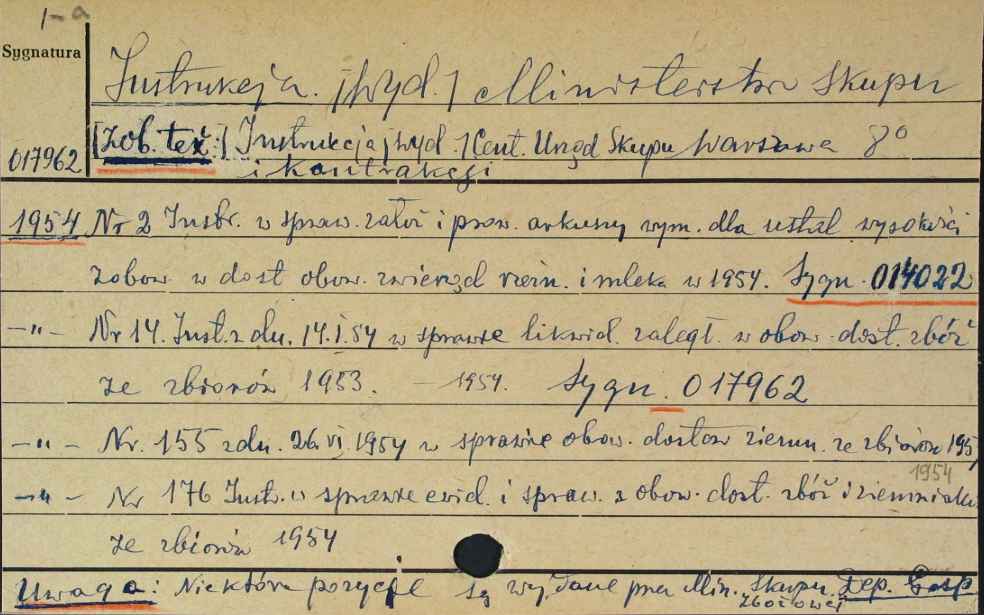 1-a
Sygnatura
Instrukcja. /Wyd./ Ministerstwa Skupu
017962 [Zob. też:] Instrukcja /wyd./ Cent. Urząd Skupu Warszawa 8°
i kontrakcji
1954 Nr 2 Instr. w spraw. założ i prow. arkuszy wym. dla ustal wysokości
zobow w dost obow. zwierząt rzeźn. i mleka w 1954. Sygn. 014022
–"– Nr 14. Inst. z dn. 14.I.54 w sprawie likwid. zaległ. w obow. dost. zbóż
ze zbiorów 1953. – 1954. Sygn. 017962
–"– Nr. 155 z dn. 26 VI 1954 w sprawie obow. dostaw ziemn. ze zbiorów 195
1954
–"– Nr 176 Inst. w sprawie ewid. i spraw. z obow. dost. zbóż i ziemniaków
ze zbiorów 1954
Uwaga: Niektóre pozycje są wydane prze Min. Skupu. Dep. Gosp.
Zbożowej